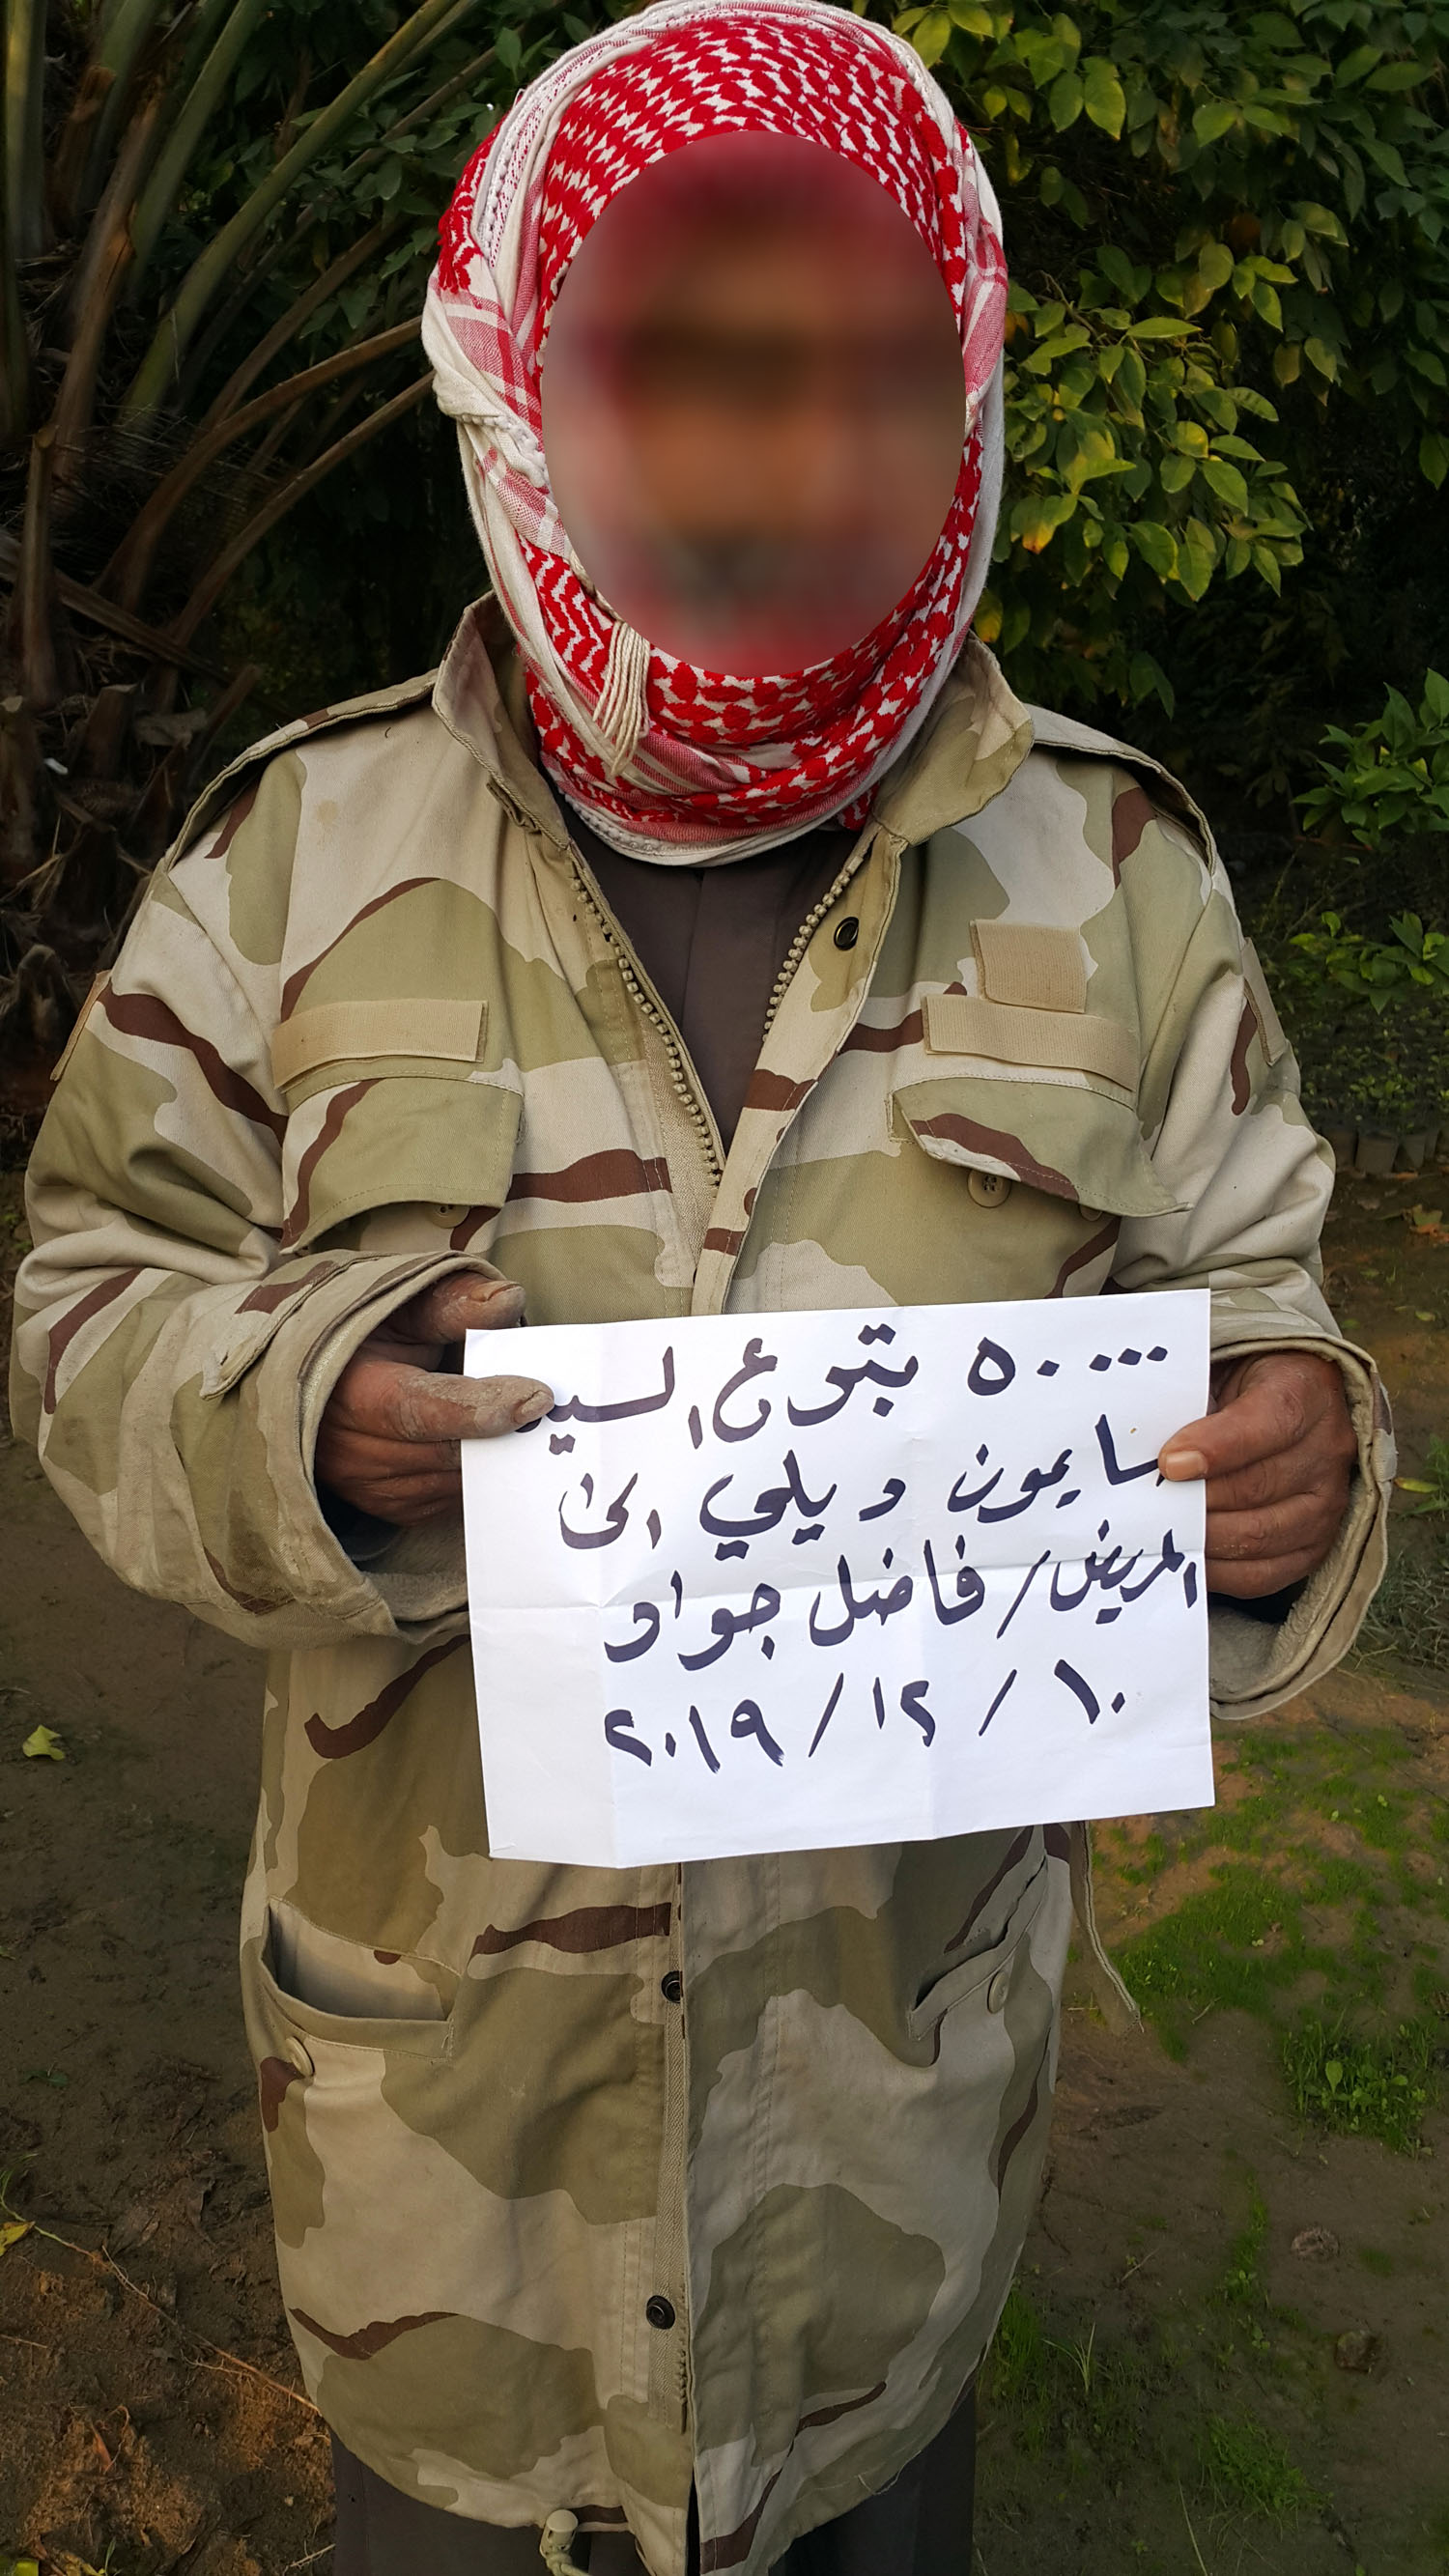 ٥٠٠٠٠٠ بتبوع السيد
سايمون ديلي الى
المريض / فاضل جواد
١٠ / ١٢ / ٢٠١٩